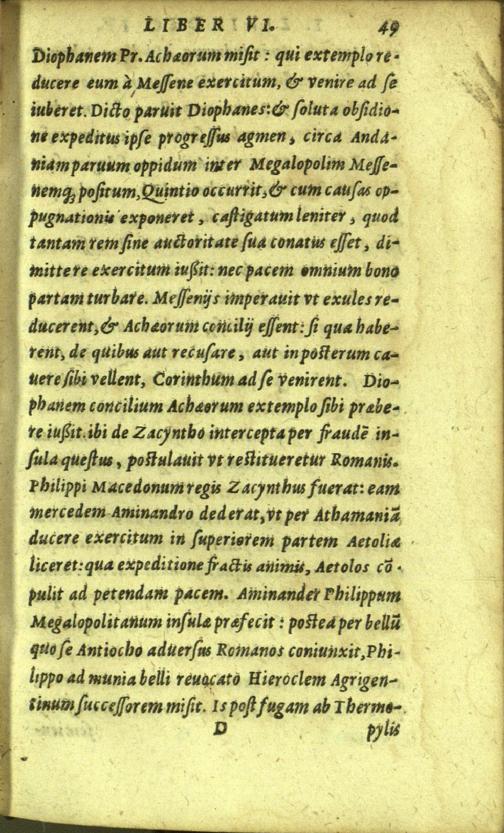 LIBER VI. 49
Diophanem Pr. Achæorum misit : qui extemplo re-
ducere eum à Messene exercitum, & venire ad se
iuberet. Dicto paruit Diophanes: & soluta obsidio-
ne expeditus ipse progressus agmen, circa Anda-
niam paruum oppidum inter Megalopolim Messe-
nemq; positum, Quintio occurrit, & cum causas op-
pugnationis exponeret, castigatum leniter, quod
tantam rem sine auctoritate sua conatus esset, di-
mittere exercitum iußit: nec pacem omnium bono
partam turbare. Messenijs imperauit vt exules re-
ducerent, & Achæorum concilij essent: si qua habe-
rent, de quibus aut recusare, aut in posterum ca-
uere sibi vellent, Corinthum ad se venirent. Dio-
phanem concilium Achæorum extemplo sibi præbe-
re iußit. ibi de Zacyntho intercepta per fraudē in-
sula questus, postulauit vt restitueretur Romanis.
Philippi Macedonum regis Zacynthus fuerat: eam
mercedem Aminandro dederat, vt per Athamaniā
ducere exercitum in superiorem partem Aetoliæ
liceret: qua expeditione fractis animis, Aetolos cō-
pulit ad petendam pacem. Aminander Philippum
Megalopolitanum insulæ præfecit : postea per bellū
quo se Antiocho aduersus Romanos coniunxit, Phi-
lippo ad munia belli reuocato Hieroclem Agrigen-
tinum successorem misit. Is post fugam ab Thermo-
D pylis